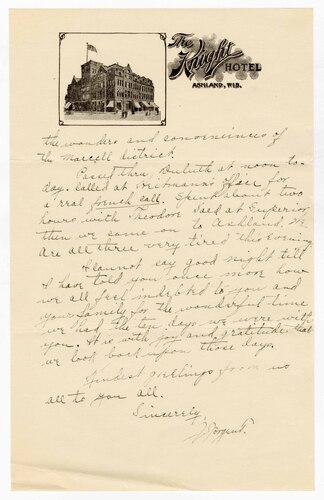 The Knight
HOTEL
ASHLAND, WIS.
the wonders and conveniences of
the Marcell district.
Passed thru Duluth at noon to-
day. Called at office for
a real french call. Spent about two
hours with Theodore at Superior
then we came on to Ashland. We
are all three very tired this evening.
I cannot say good night till
I have told you once more how
we all feel indebted to you and
your family for the wonderful time
we had the ten days we were with
you. It is with joy and gratitude that
we look back upon those days.
Kindest greetings from us
all to you all.
Sincerely,